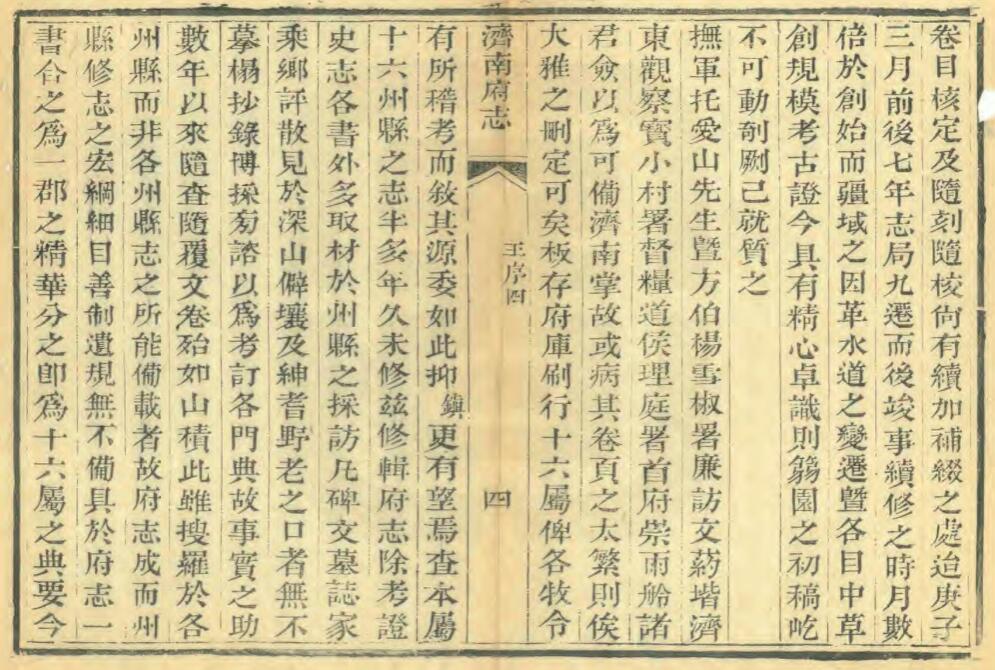 卷目核定及隨刻隨校尙有續加補綴之處迨庚子
三月前後七年志局九遷而後竣事續修之時月數
倍於創始而疆域之因革水道之變遷曁各目中草
創規模考古證今具有精心卓識則篛園之初稿屹
不可動剞劂已就質之
撫軍托愛山先生曁方伯楊雪椒署廉訪文葯堦濟
東觀察寶小村署督糧道侯理庭署首府崇雨舲諸
君僉以爲可備濟南掌故或病其卷頁之太繁則俟
大雅之刪定可矣板存府庫刷行十六屬俾各牧令
濟南府志
王序四
四
有所稽考而敘其源委如此抑鎮更有望焉查本屬
十六州縣之志半多年久未修茲修輯府志除考證
史志各書外多取材於州縣之採訪凡碑文墓誌家
乘鄉評散見於深山僻壤及紳耆野老之口者無不
摹搨抄錄博採旁諮以爲考訂各門典故事實之助
數年以來隨查隨覆文卷殆如山積此雖搜羅於各
州縣而非各州縣志之所能備載者故府志成而州
縣修志之宏綱細目善制遺規無不備具於府志一
書合之爲一郡之精華分之卽爲十六屬之典要今